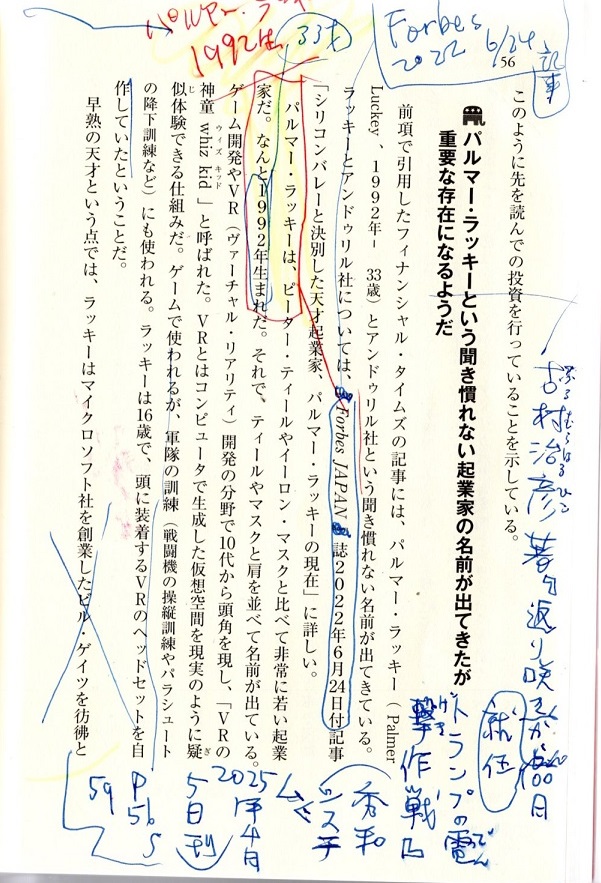 パルマー・ラッ
1992生
33才
Forbes
2022 6/24
記事
56
このように先を読んでの投資を行っていることを示している。
パルマー・ラッキーという聞き慣れない起業家の名前が出てきたが
重要な存在になるようだ
前項で引用したフィナンシャル・タイムズの記事には、パルマー・ラッキー（Palmer
Luckey、1992年－　33歳）とアンドゥリル社という聞き慣れない名前が出てきている。
ラッキーとアンドゥリル社については、『Forbes JAPAN』誌2022年6月24日付記事
「シリコンバレーと決別した天才起業家、パルマー・ラッキーの現在」に詳しい。
パルマー・ラッキーは、ピーター・ティールやイーロン・マスクと比べて非常に若い起業
家だ。なんと1992年生まれだ。それで、ティールやマスクと肩を並べて名前が出ている。
ゲーム開発やVR（ヴァーチャル・リアリティ）開発の分野で10代から頭角を現し、「VRの
神童 whiz kid」と呼ばれた。VRとはコンピュータで生成した仮想空間を現実のように疑
ウィズ　キッド
ぎ
似体験できる仕組みだ。ゲームで使われるが、軍隊の訓練（戦闘機の操縦訓練やパラシュート
じ
の降下訓練など）にも使われる。ラッキーは16歳で、頭に装着するVRのヘッドセットを自
作していたということだ。
早熟の天才という点では、ラッキーはマイクロソフト社を創業したビル・ゲイツを彷彿と
古村治彦著
ふるむらはるひこ
返り咲き
100日
トランプの電
でん
撃作戦」
げき
秀和
システ
2025
年4月
5日刊
P
56
59